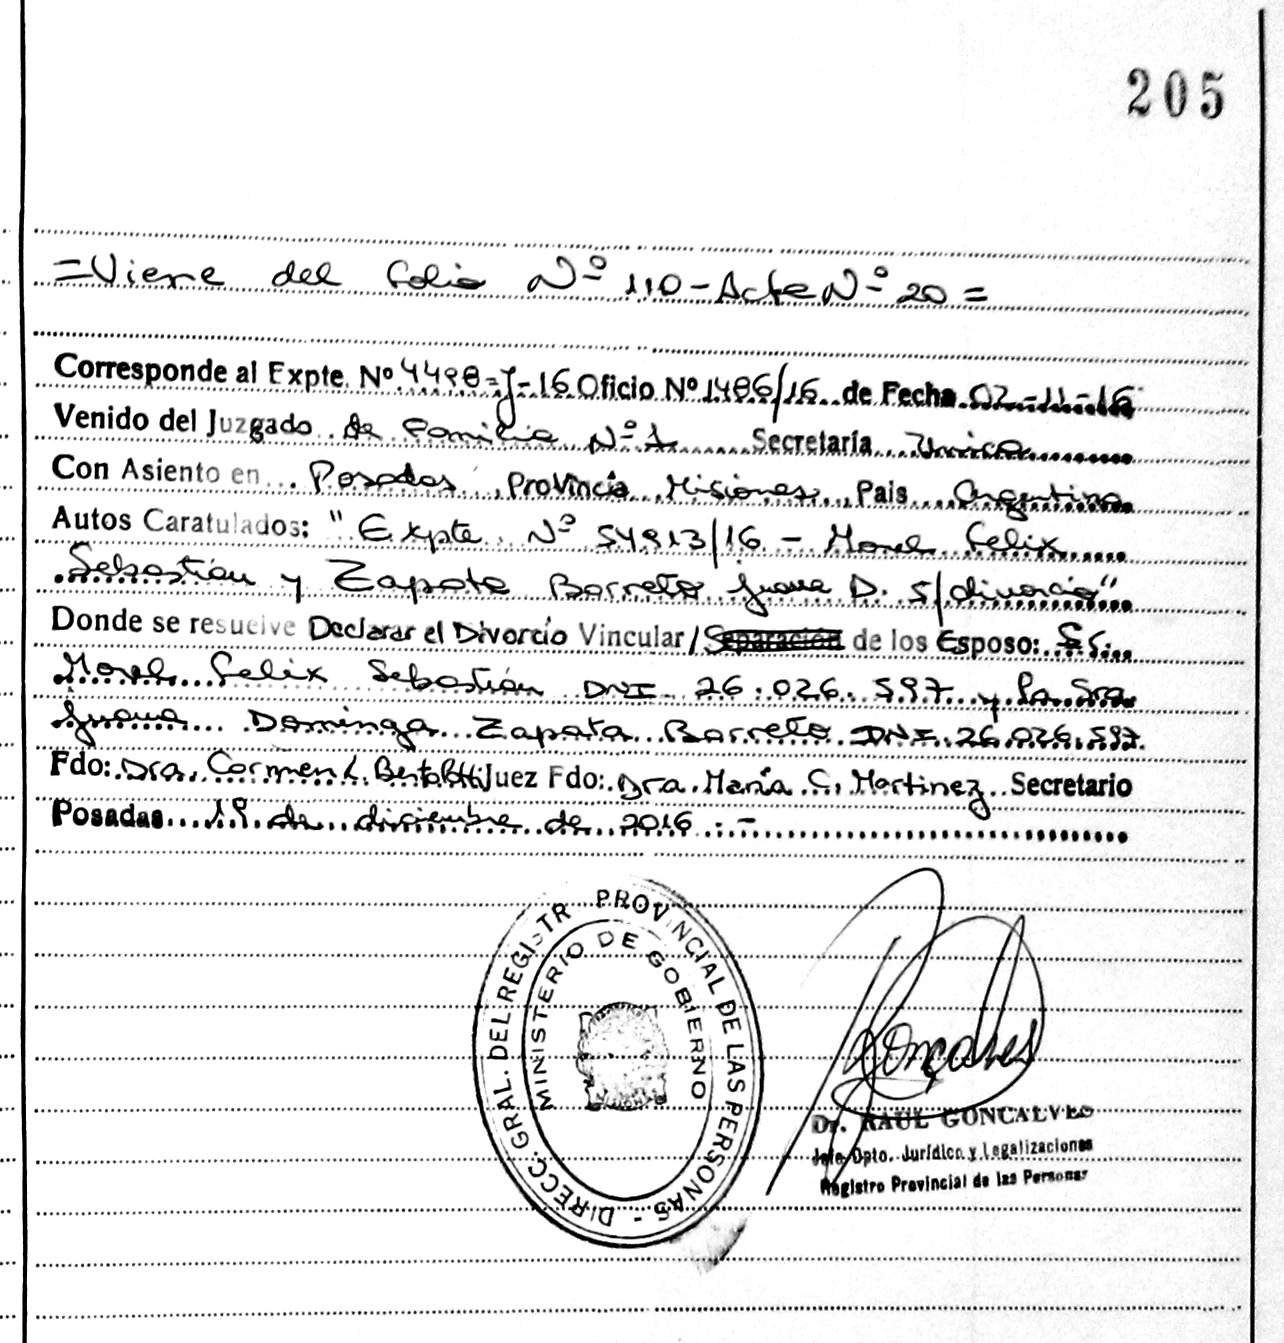 205
=Viene del folio Nº 110-Acta Nº 20=
Corresponde al Expte. Nº 4498-J-16 Oficio Nº 1486/16 de Fecha 02-11-16
Venido del Juzgado de Familia Nº 1 Secretaría Unica
Con Asiento en Posadas, Provincia Misiones, Pais Argentina
Autos Caratulados: "Expte Nº 54913/16 - Morel Felix
Sebastián y Zapata Barreto Juana D. s/divorcio"
Donde se resuelve Declarar el Divorcio Vincular/Separación de los Esposo: Sr.
Morel Felix Sebastián DNI 26.026.597 y la Sra
Juana Dominga Zapata Barreto DNI 26.026.597
Fdo: Dra. Carmen L. Juez Fdo: Dra. María C. Martinez Secretario
Posadas 19 de diciembre de 2016.-
DIRECC. GRAL. DEL REGISTR PROVINCIAL DE LAS PERSONAS -
MINISTERIO DE GOBIERNO
Gonçalves
Dr. RAUL GONCALVES
Jefe Dpto. Jurídico y Legalizaciones
Registro Provincial de las Personas